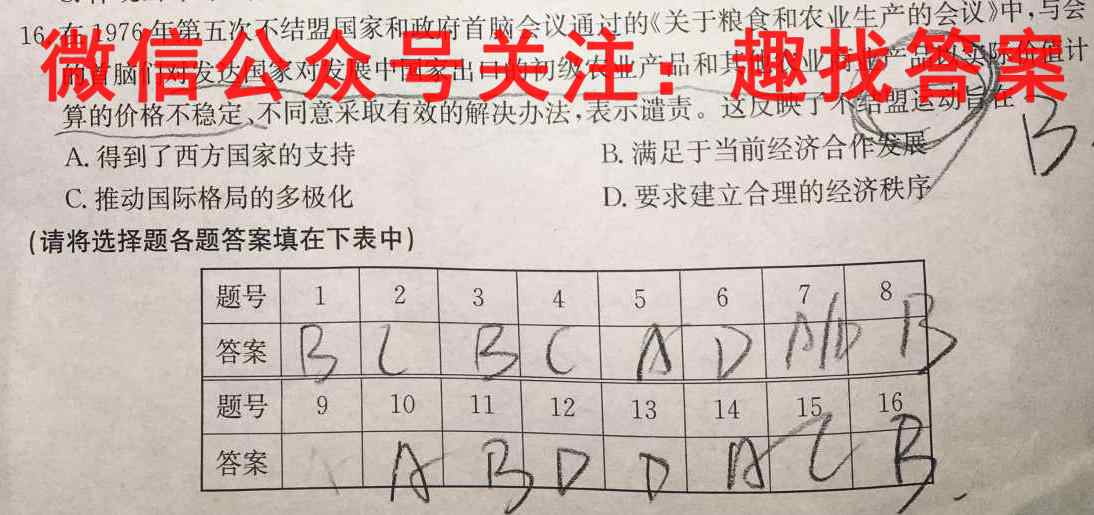 16. 在1976年第五次不结盟国家和政府首脑会议通过的《关于粮食和农业生产的会议》中,与会
微信公众号关注：趣找答案
的首脑们对发达国家对发展中国家出口的初级农业产品和其他农业商业产品的实际价值计
算的价格不稳定、不同意采取有效的解决办法,表示谴责。这反映了不结盟运动旨在
B.
A. 得到了西方国家的支持 B. 满足于当前经济合作发展
C. 推动国际格局的多极化 D. 要求建立合理的经济秩序
(请将选择题各题答案填在下表中)
题号 1 2 3 4 5 6 7 8
答案 B C B C A D A/D B
题号 9 10 11 12 13 14 15 16
答案 A A B D D A C B.